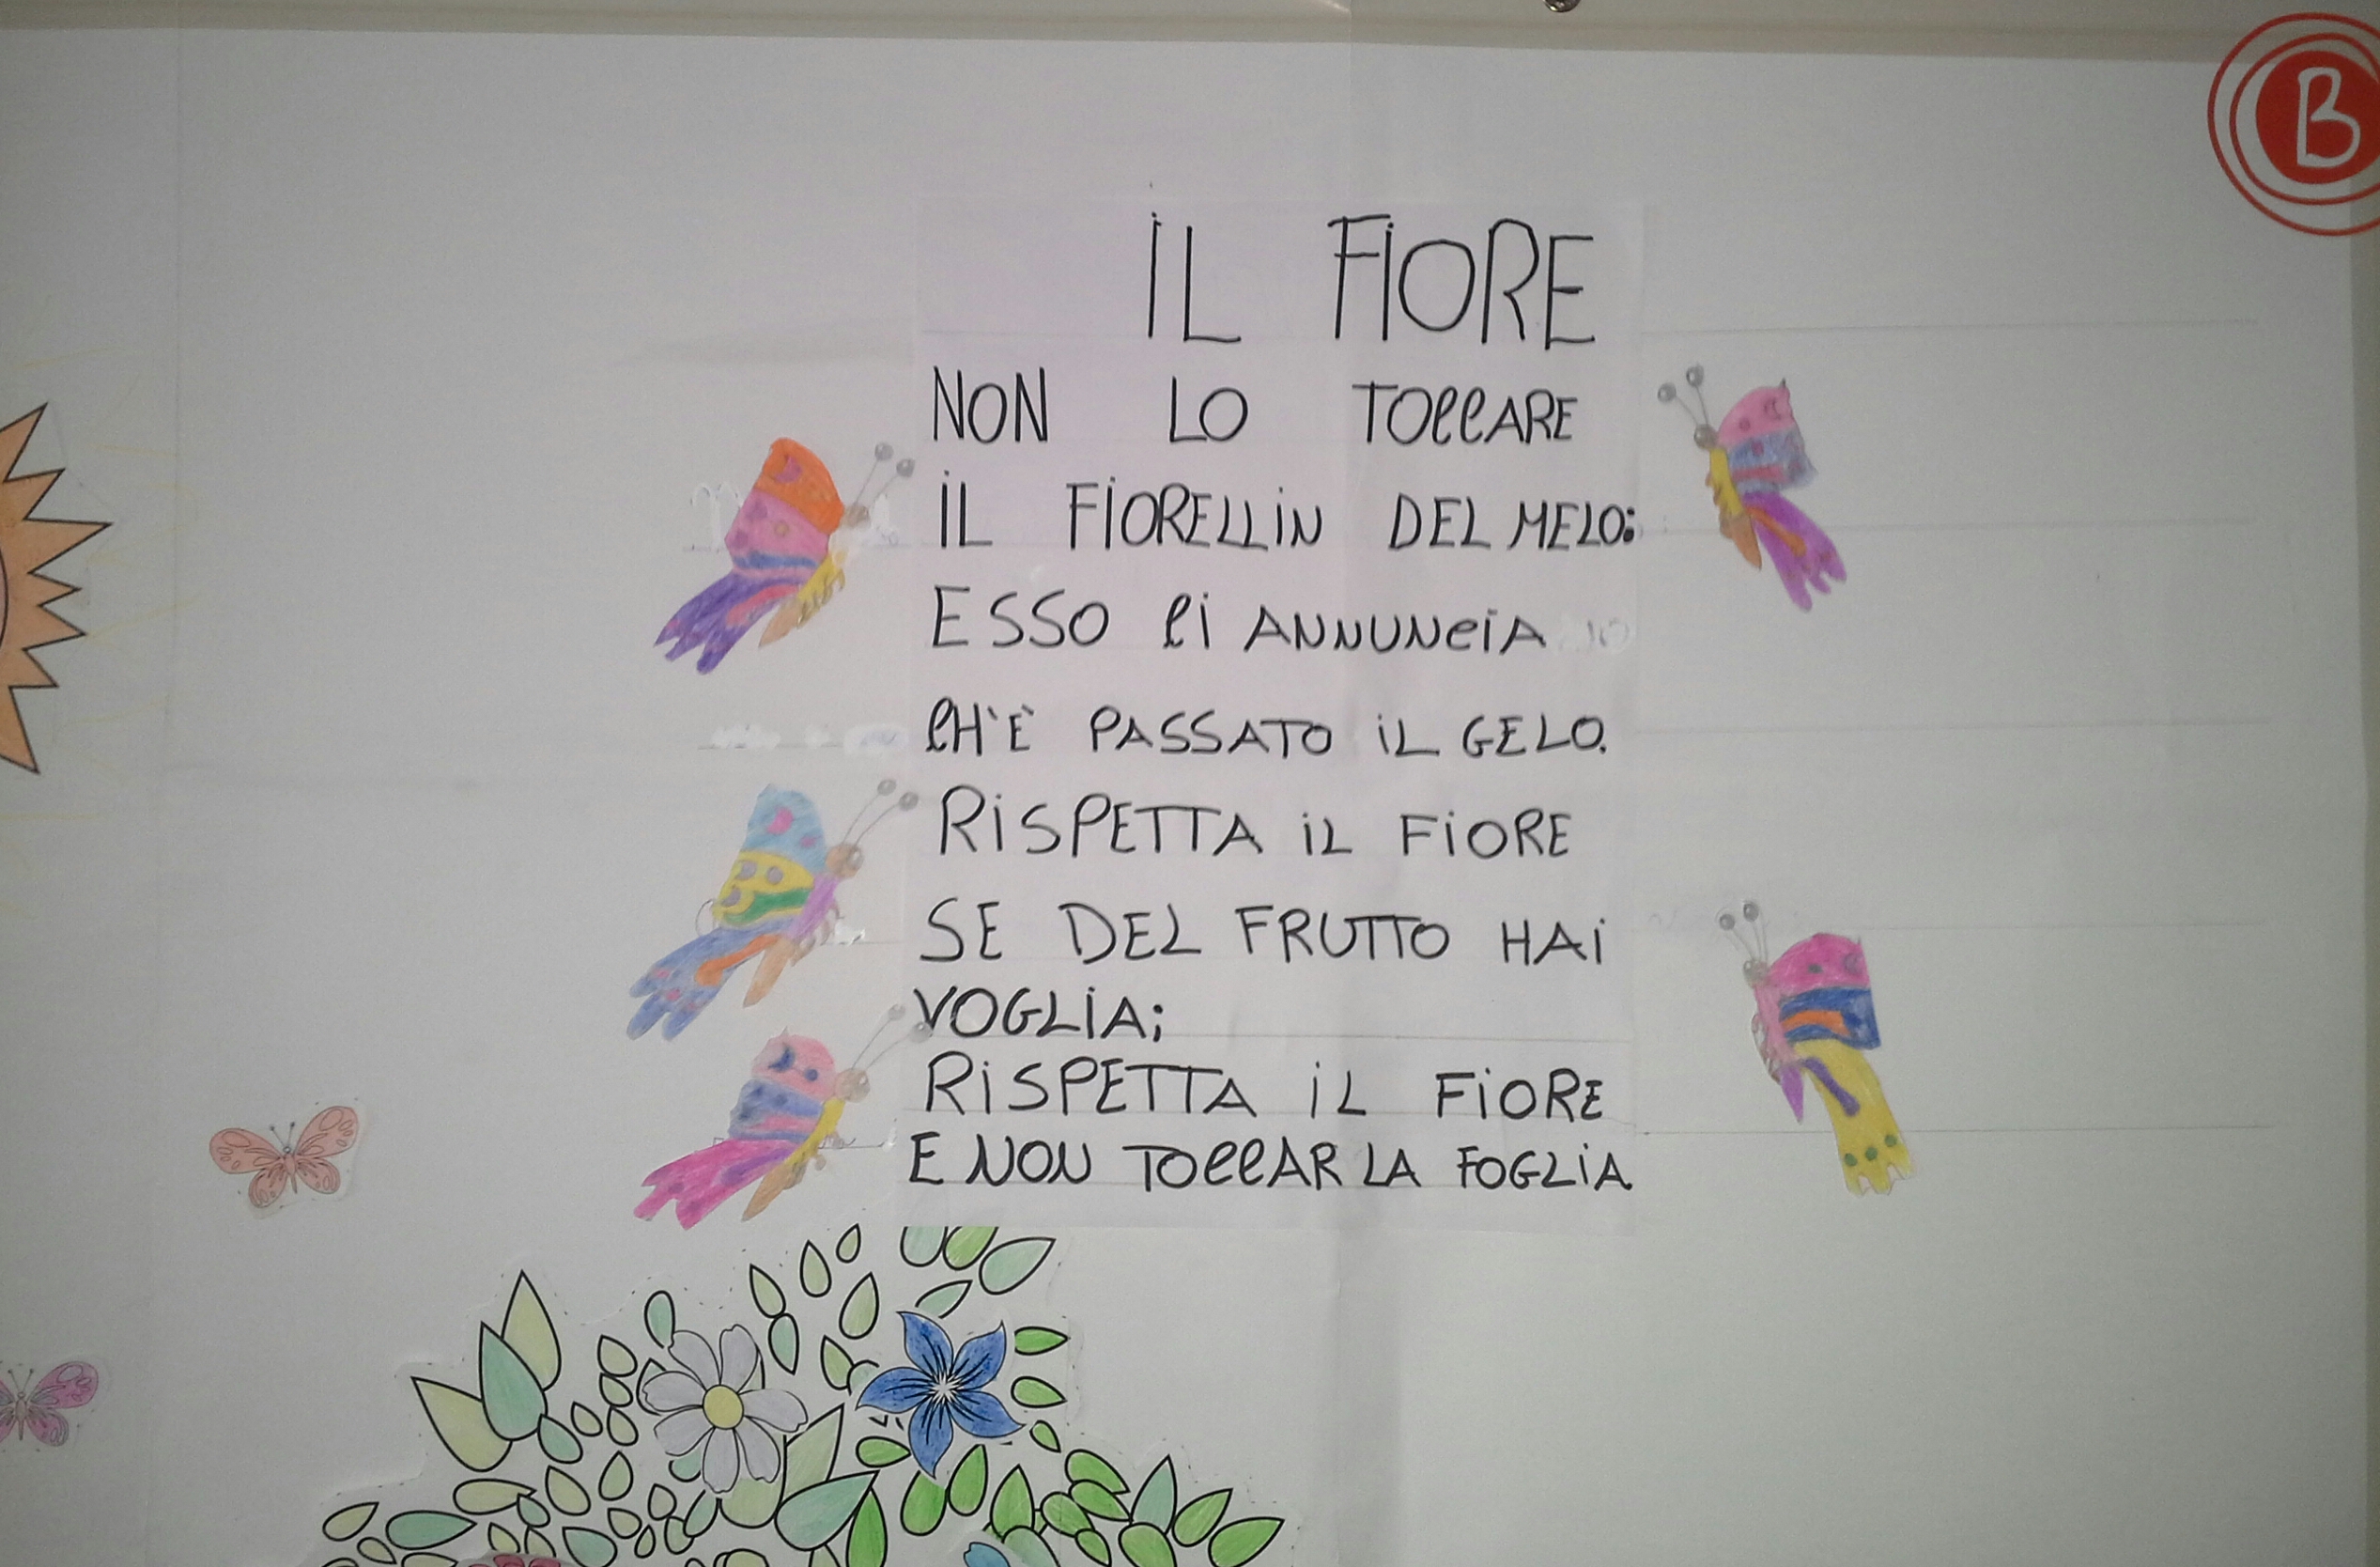 B
IL FIORE
NON LO TOCCARE
IL FIORELLIN DEL MELO:
ESSO CI ANNUNCIA
CH'È PASSATO IL GELO.
RISPETTA IL FIORE
SE DEL FRUTTO HAI
VOGLIA;
RISPETTA IL FIORE
E NON TOCCAR LA FOGLIA